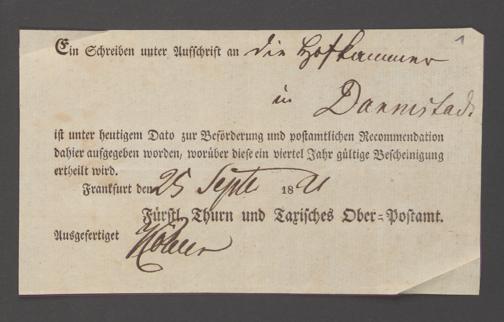 Ein Schreiben unter Aufschrift an die Hofkammer
in Darmstadt
ist unter heutigem Dato zur Beförderung und postamtlichen Recommendation
dahier aufgegeben worden, worüber diese ein viertel Jahr gültige Bescheinigung
ertheilt wird.
Frankfurt den 25 Septe 1821
Fürstl. Thurn und Taxisches Ober-Postamt.
Ausgefertiget